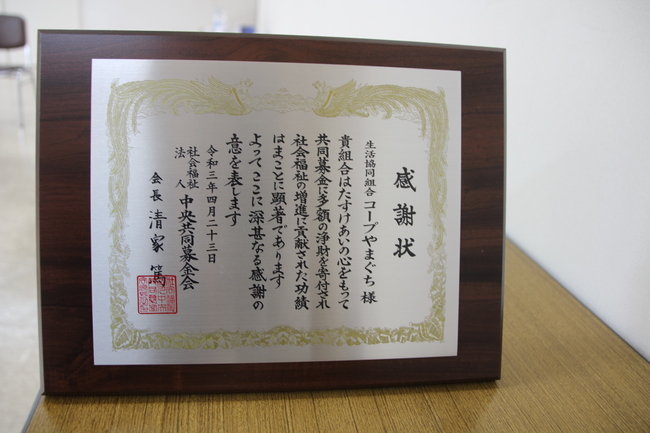 感謝状
生活協同組合 コープやまぐち 様
貴組合はたすけあいの心をもって
共同募金に多額の浄財を寄付され
社会福祉の増進に貢献された功績
はまことに顕著であります
よってここに深甚なる感謝の
意を表します
令和三年四月二十三日
社会福祉法人 中央共同募金会
会長 清家 篤